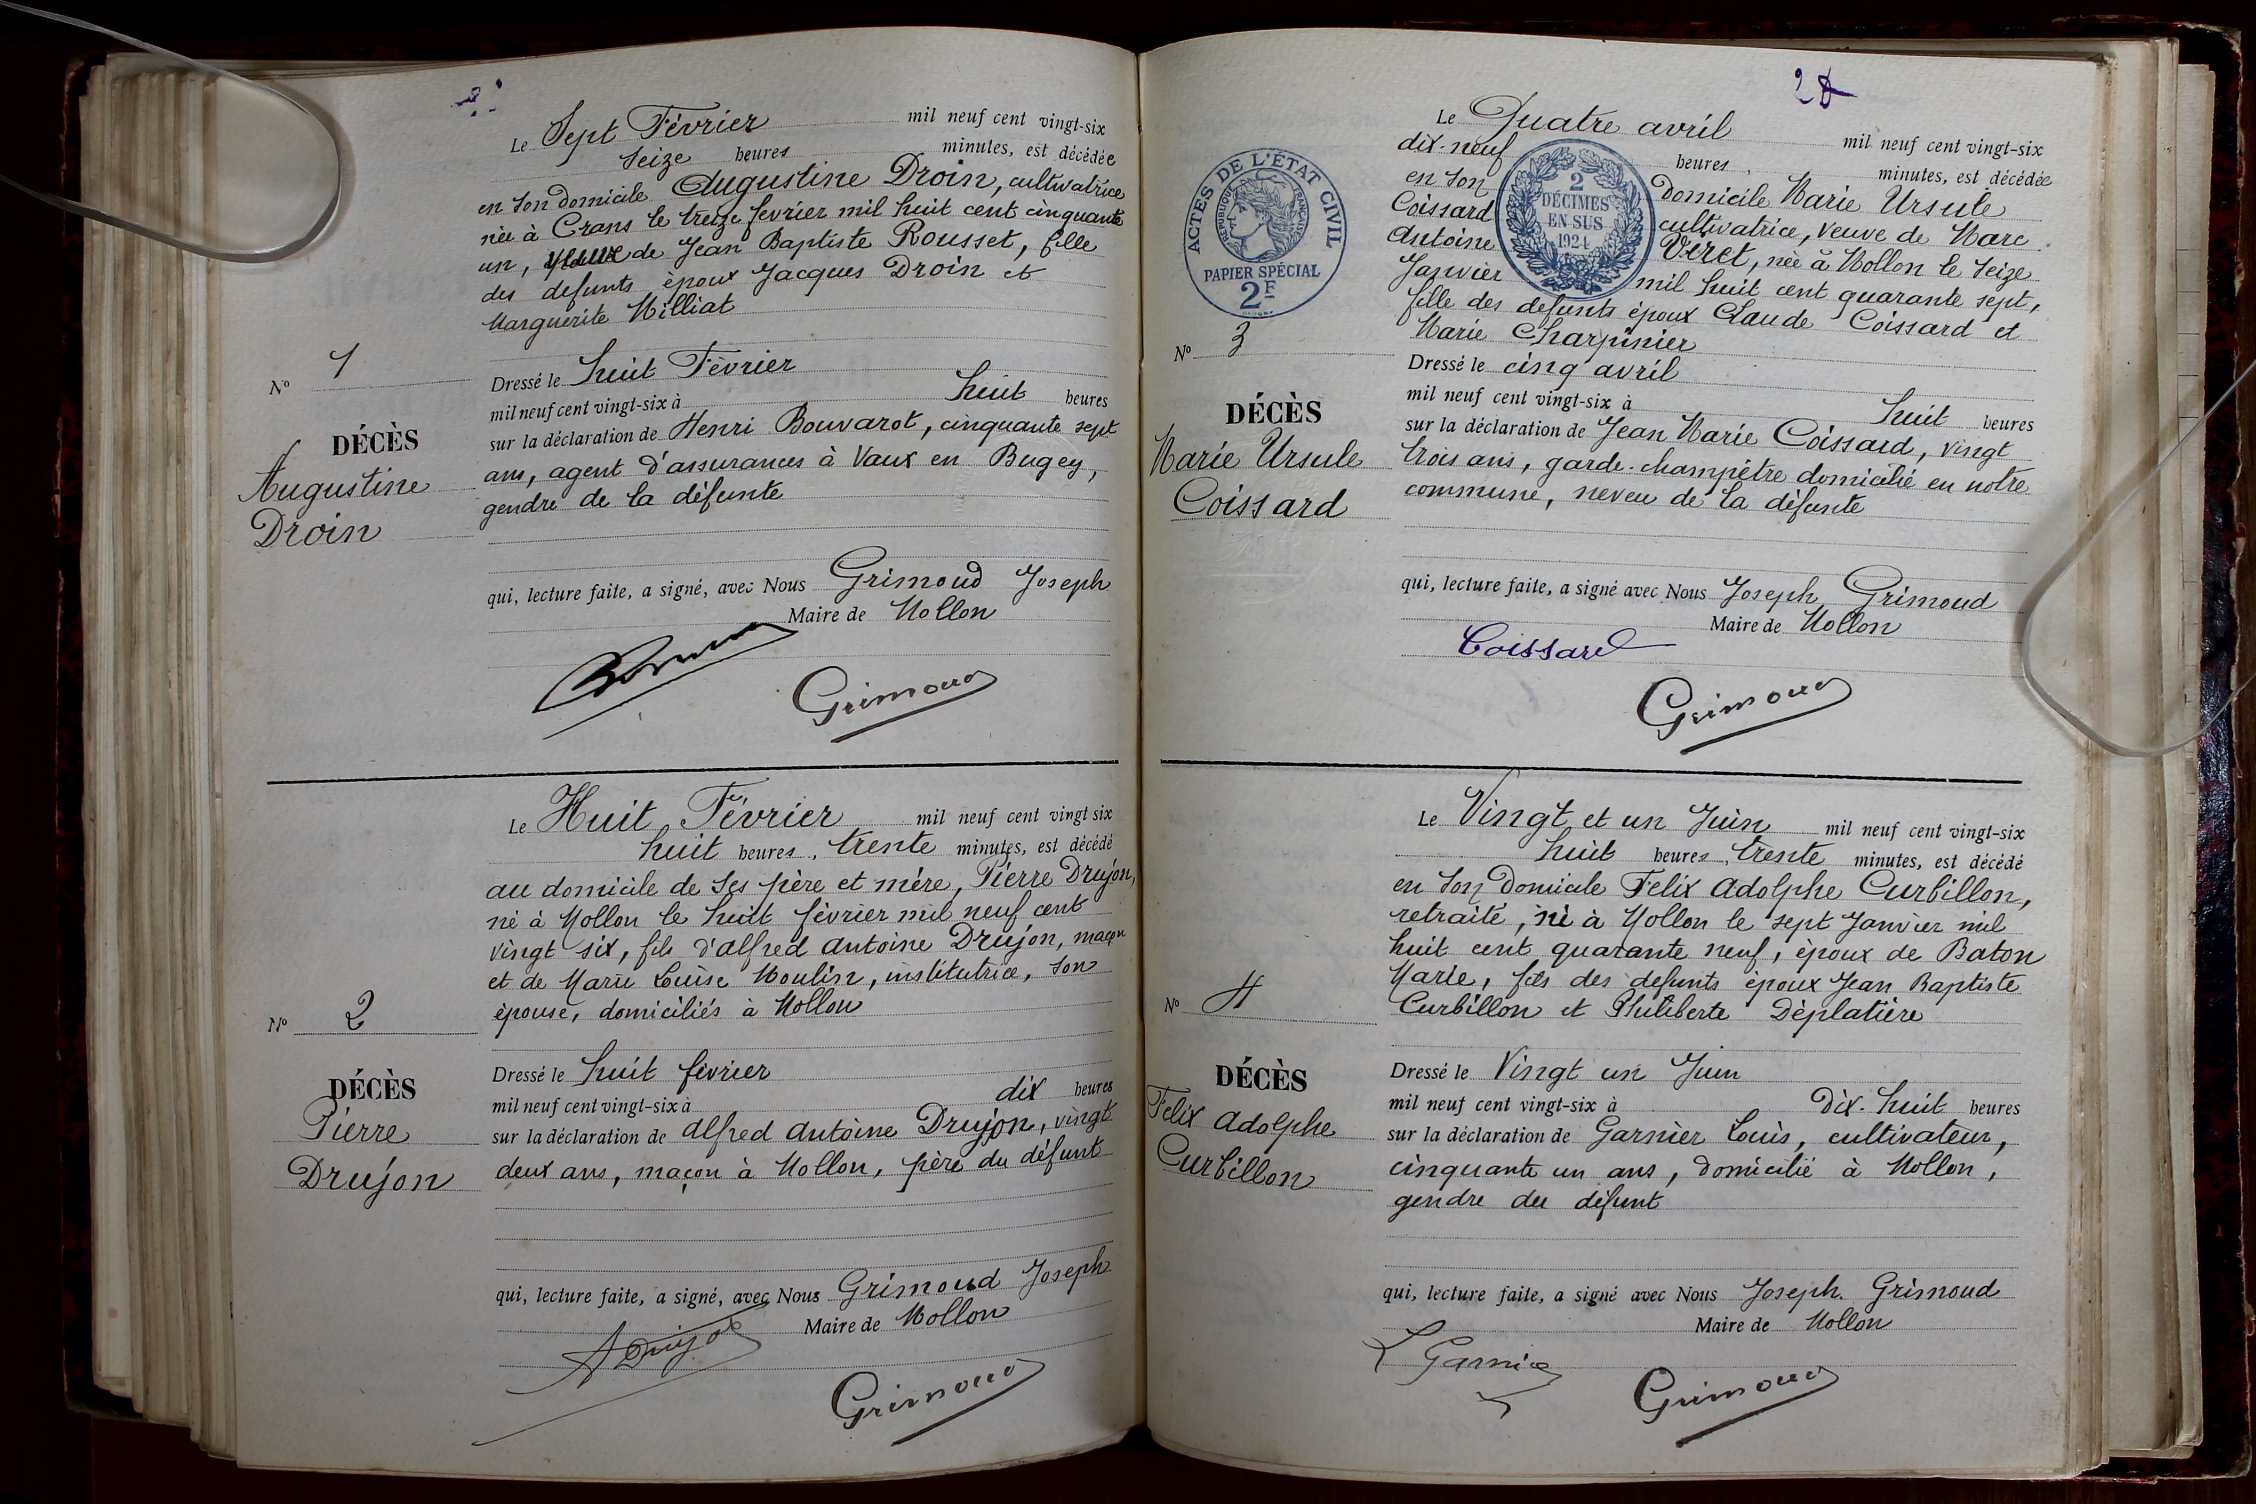 Le Sept Février mil neuf cent vingt-six
seize heures minutes, est décédée
en son domicile Augustine Droin, cultivatrice
née à Crans le treize fevrier mil huit cent cinquante
un, de Jean Baptiste Rousset, fille
des defunts époux Jacques Droin et
Marguerite Milliat
N° 1
DÉCÈS
Augustine
Droin
Dressé le huit Février
mil neuf cent vingt-six à huit heures
sur la déclaration de Henri Bouvarot, cinquante sept
ans, agent d'assurances à Vaux en Bugey,
gendre de la défunte
qui, lecture faite, a signé, avec Nous Grimoud Joseph
Maire de Mollon
Grimoud
Le Huit Février mil neuf cent vingt six
huit heures, trente minutes, est décédé
au domicile de ses père et mère, Pierre Drujon,
né à Mollon le huit février mil neuf cent
vingt six, fils d'alfred antoine Drujon, maçon
et de Marie Louise Moulin, institutrice, son
épouse, domiciliés à Mollon
N° 2
DÉCÈS
Pierre
Drujon
Dressé le huit février
mil neuf cent vingt-six à dix heures
sur la déclaration de alfred antoine Drujon, vingt
deux ans, maçon à Mollon, père du défunt
qui, lecture faite, a signé, avec Nous Grimoud Joseph
Maire de Mollon
A Drujon
Grimoud
2
Le Quatre avril mil neuf cent vingt-six
dix-neuf heures minutes, est décédée
en son domicile Marie Ursule
Coissard cultivatrice, veuve de Marc
Antoine Véret, née à Mollon le seize
Janvier mil huit cent quarante sept,
fille des defunts époux Claude Coissard et
Marie Charpinier
ACTES DE L'ÉTAT CIVIL
RÉPUBLIQUE FRANÇAISE
PAPIER SPÉCIAL
2F
2
DÉCIMES
EN SUS
1924
N° 3
DÉCÈS
Marie Ursule
Coissard
Dressé le cinq avril
mil neuf cent vingt-six à huit heures
sur la déclaration de Jean Marie Coissard, vingt
trois ans, garde-champêtre domicilié en notre
commune, neveu de la défunte
qui, lecture faite, a signé avec Nous Joseph Grimoud
Maire de Mollon
Coissard
Grimoud
Le Vingt et un Juin mil neuf cent vingt-six
huit heures, trente minutes, est décédé
en son domicile Felix Adolphe Curbillon,
retraité, né à Mollon le sept Janvier mil
huit cent quarante neuf, époux de Baton
Marie, fils des defunts époux Jean Baptiste
Curbillon et Philiberte Déplatière
N° 4
DÉCÈS
Felix Adolphe
Curbillon
Dressé le Vingt un Juin
mil neuf cent vingt-six à Dix-huit heures
sur la déclaration de Garnier Louis, cultivateur,
cinquante un ans, domicilié à Mollon,
gendre du défunt
qui, lecture faite, a signé avec Nous Joseph Grimoud
Maire de Mollon
L Garnier
Grimoud